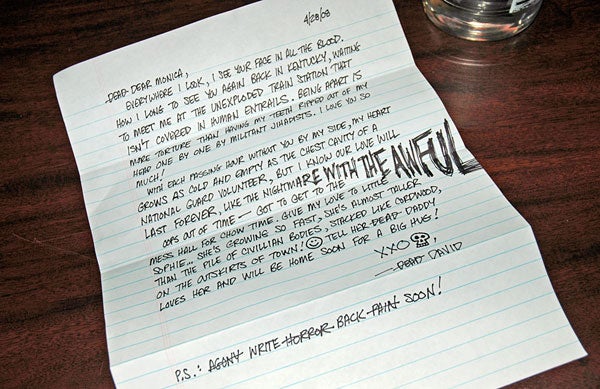 4/28/08
DEAD DEAR MONICA,
EVERYWHERE I LOOK, I SEE YOUR FACE IN ALL THE BLOOD.
HOW I LONG TO SEE YOU AGAIN BACK IN KENTUCKY, WAITING
TO MEET ME AT THE UNEXPLODED TRAIN STATION THAT
ISN'T COVERED IN HUMAN ENTRAILS. BEING APART IS
MORE TORTURE THAN HAVING MY TEETH RIPPED OUT OF MY
HEAD ONE BY ONE BY MILITANT JIHADISTS. I LOVE YOU SO
MUCH!
WITH EACH PASSING HOUR WITHOUT YOU BY MY SIDE, MY HEART
GROWS AS COLD AND EMPTY AS THE CHEST CAVITY OF A
NATIONAL GUARD VOLUNTEER, BUT I KNOW OUR LOVE WILL
LAST FOREVER, LIKE THE NIGHTMARE WITH THE AWFUL
OOPS OUT OF TIME — GOT TO GET TO THE
MESS HALL FOR CHOW TIME. GIVE MY LOVE TO LITTLE
SOPHIE... SHE'S GROWING SO FAST, SHE'S ALMOST TALLER
THAN THE PILE OF CIVILLIAN BODIES, STACKED LIKE CORDWOOD,
ON THE OUTSKIRTS OF TOWN! TELL HER DEAD DADDY
LOVES HER AND WILL BE HOME SOON FOR A BIG HUG!
XXO
— DEAD DAVID
P.S.: AGONY WRITE HORROR BACK PAIN SOON!